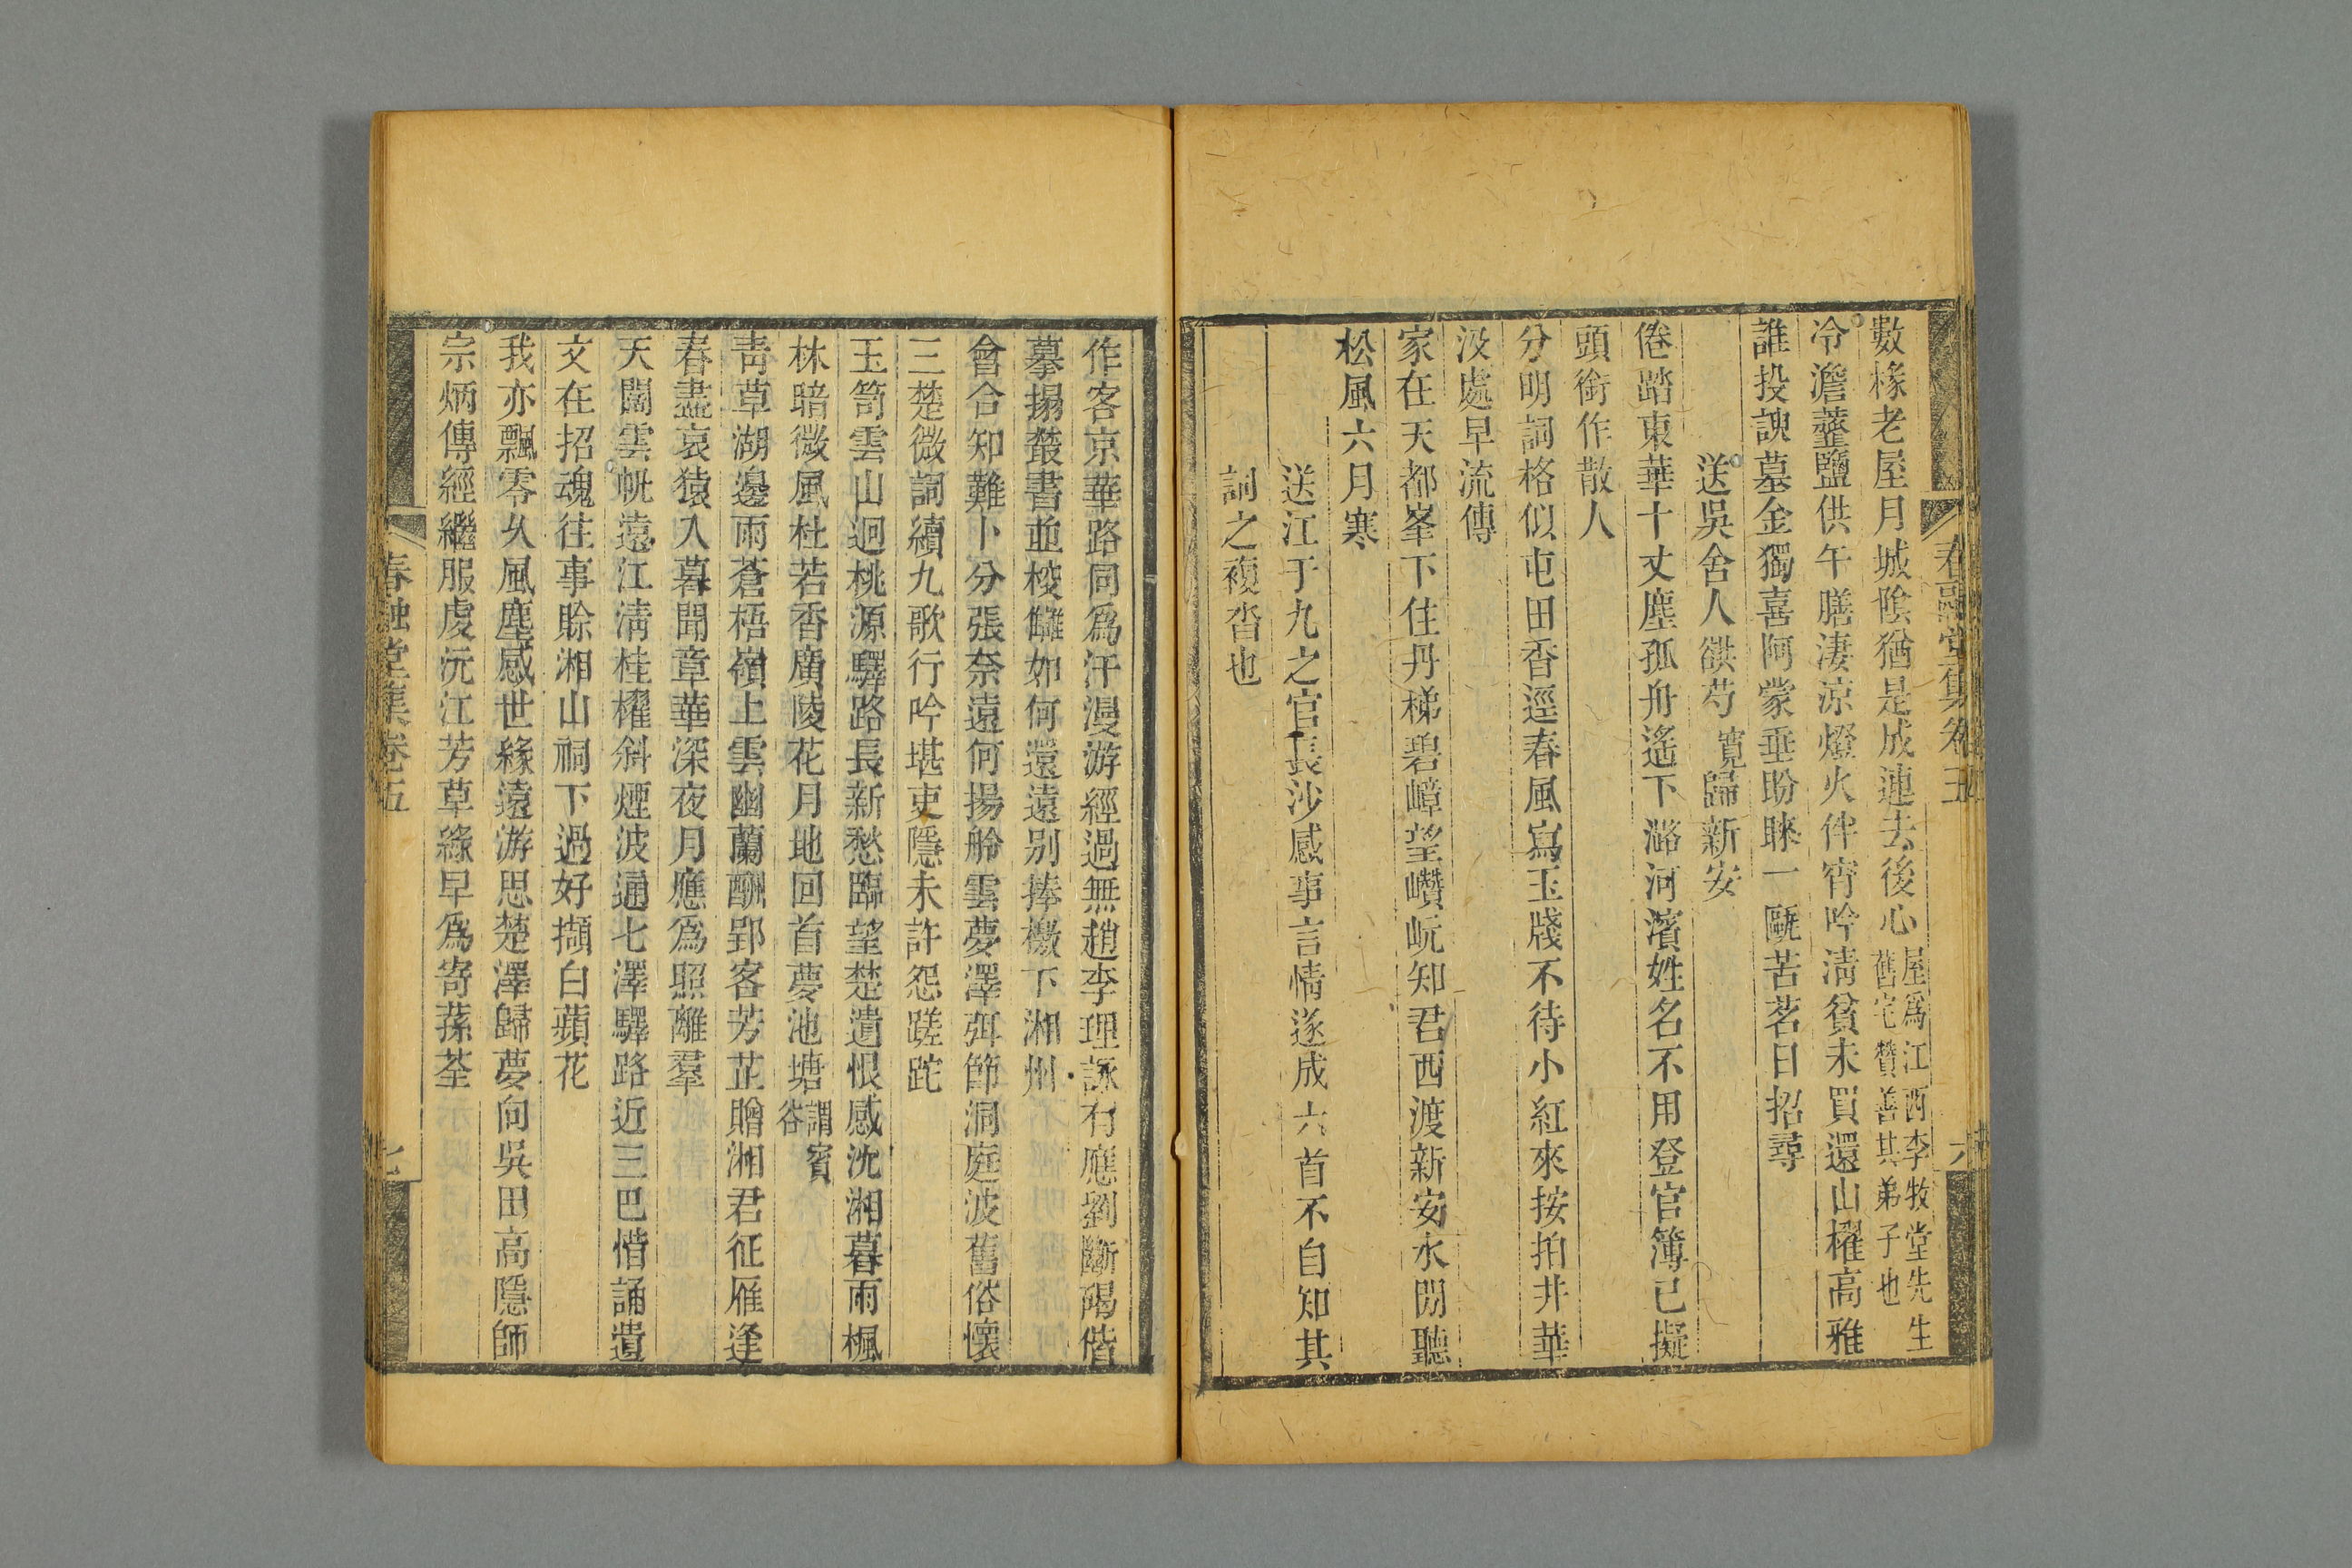 春融堂集卷五
六
數椽老屋月城陰猶是成連去後心屋爲江西李牧堂先生舊宅贊善其弟子也
冷澹虀鹽供午膳淒涼燈火伴宵吟淸貧未買還山櫂高雅
誰投諛墓金獨喜阿蒙垂盼睞一甌苦茗日招尋
送吳舍人䜪芍寬歸新安
倦踏東華十丈塵孤舟遙下潞河濱姓名不用登官簿已擬
頭銜作散人
分明詞格似屯田香逕春風寫玉牋不待小紅來按拍井華
汲處早流傳
家在天都峯下住丹梯碧嶂望巑岏知君西渡新安水閒聽
松風六月寒
送江于九之官長沙感事言情遂成六首不自知其
詞之複沓也
作客京華路同爲汗漫游經過無趙李理詠有應劉斷碣偕
摹搨叢書並校讎如何還遠別捧檄下湘州
會合知難卜分張奈遠何揚舲雲夢澤弭節洞庭波舊俗懷
三楚微詞續九歌行吟堪吏隱未許怨蹉跎
玉笥雲山迥桃源驛路長新愁臨望楚遺恨感沈湘暮雨楓
林暗微風杜若香廣陵花月地回首夢池塘謂賓谷
靑草湖邊雨蒼梧嶺上雲幽蘭酬郢客芳芷贈湘君征雁逢
春盡哀猿入暮聞章華深夜月應爲照離羣
天闊雲帆遠江淸桂櫂斜煙波通七澤驛路近三巴惜誦遺
文在招魂往事賒湘山祠下過好擷白蘋花
我亦飄零久風塵感世緣遠游思楚澤歸夢向吳田高隱師
宗炳傳經繼服虔沅江芳草綠早爲寄蓀荃
春融堂集卷五
七